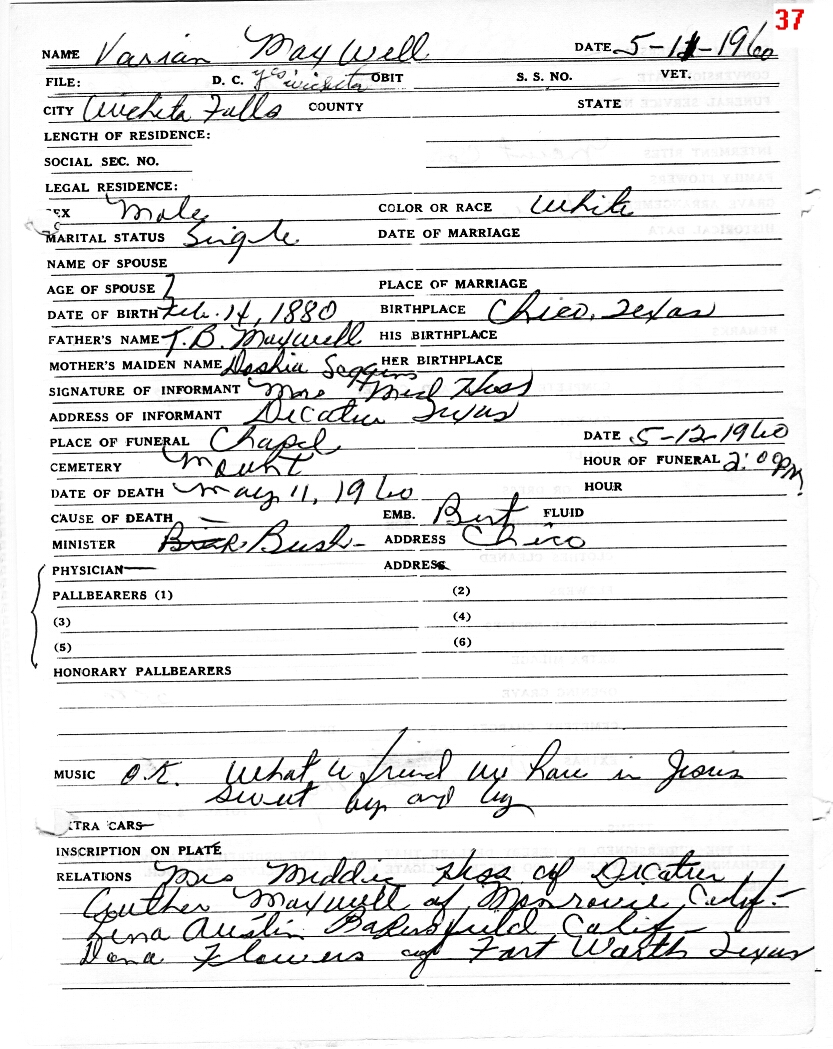 37
NAME Varian Maxwell DATE 5-11-1960
FILE: D. C. yes Wichita OBIT S. S. NO. VET.
CITY Wichita Falls COUNTY STATE
LENGTH OF RESIDENCE:
SOCIAL SEC. NO.
LEGAL RESIDENCE:
SEX Male COLOR OR RACE White
MARITAL STATUS Single DATE OF MARRIAGE
NAME OF SPOUSE
AGE OF SPOUSE PLACE OF MARRIAGE
DATE OF BIRTH Feb. 14, 1880 BIRTHPLACE Chico, Texas
FATHER'S NAME T. B. Maxwell HIS BIRTHPLACE
MOTHER'S MAIDEN NAME Doshia Scoggins HER BIRTHPLACE
SIGNATURE OF INFORMANT Mrs Hess
ADDRESS OF INFORMANT Decatur Texas
PLACE OF FUNERAL Chapel DATE 5-12-1960
CEMETERY Mount HOUR OF FUNERAL 2:00 PM
DATE OF DEATH May 11, 1960 HOUR
CAUSE OF DEATH — EMB. Burt FLUID
MINISTER Bush - ADDRESS Chico
PHYSICIAN — ADDRESS
PALLBEARERS (1) (2)
(3) (4)
(5) (6)
HONORARY PALLBEARERS
MUSIC O.K. What a friend we have in Jesus
Sweet by and by
XTRA CARS —
INSCRIPTION ON PLATE
RELATIONS Mrs Middie Hess of Decatur
Author Maxwell of Monrovie Calif. -
Lena Austin Bakersfield Calif -
Dona Flowers of Fort Worth Texas